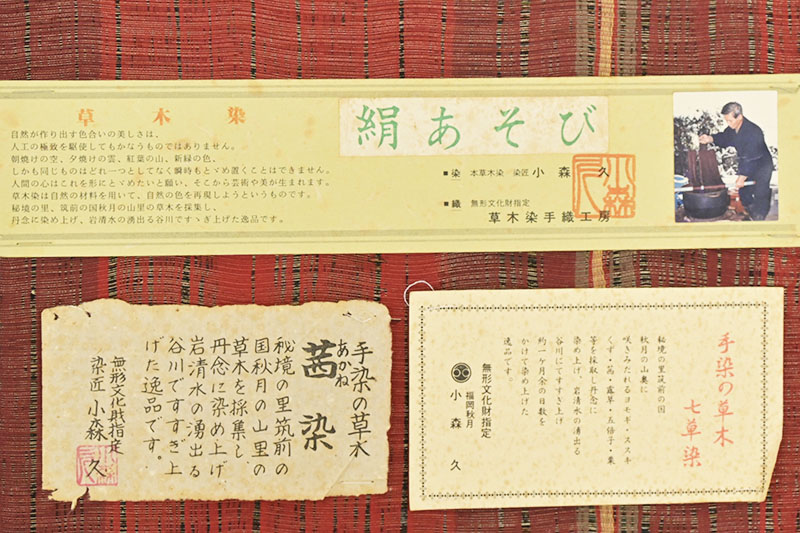 草木染
自然が作り出す色合いの美しさは、
人工の極致を駆使してもかなうものではありません。
朝焼けの空、夕焼けの雲、紅葉の山、新緑の色、
しかも同じものはどれ一つとしてなく瞬時もとゞめ置くことはできません。
人間の心はこれを形にとゞめたいと願い、そこから芸術や美が生まれます。
草木染は自然の材料を用いて、自然の色を再現しようというものです。
秘境の里、筑前の国秋月の山里の草木を採集し、
丹念に染め上げ、岩清水の湧出る谷川ですゝぎ上げた逸品です。
絹あそび
■染 本草木染 染匠 小森 久
■織 無形文化財指定
草木染手織工房
手染の草木
あかね
茜染
秘境の里筑前の
国秋月の山里の
草木を採集し、
丹念に染め上げ
岩清水の湧出る
谷川ですすぎ上
げた逸品です。
無形文化財指定
染匠 小森 久
手染の草木
七草染
秘境の里筑前の国
秋月の山奥に
咲きみだれるヨモギ・ススキ
くず・茜・露草・五倍子・葉
等を採取し丹念に
染め上げ、岩清水の湧出る
谷川にてすすぎ上げ
約一ケ月余の日数を
かけて染め上げた
逸品です。
無形文化財指定
福岡秋月
小森 久